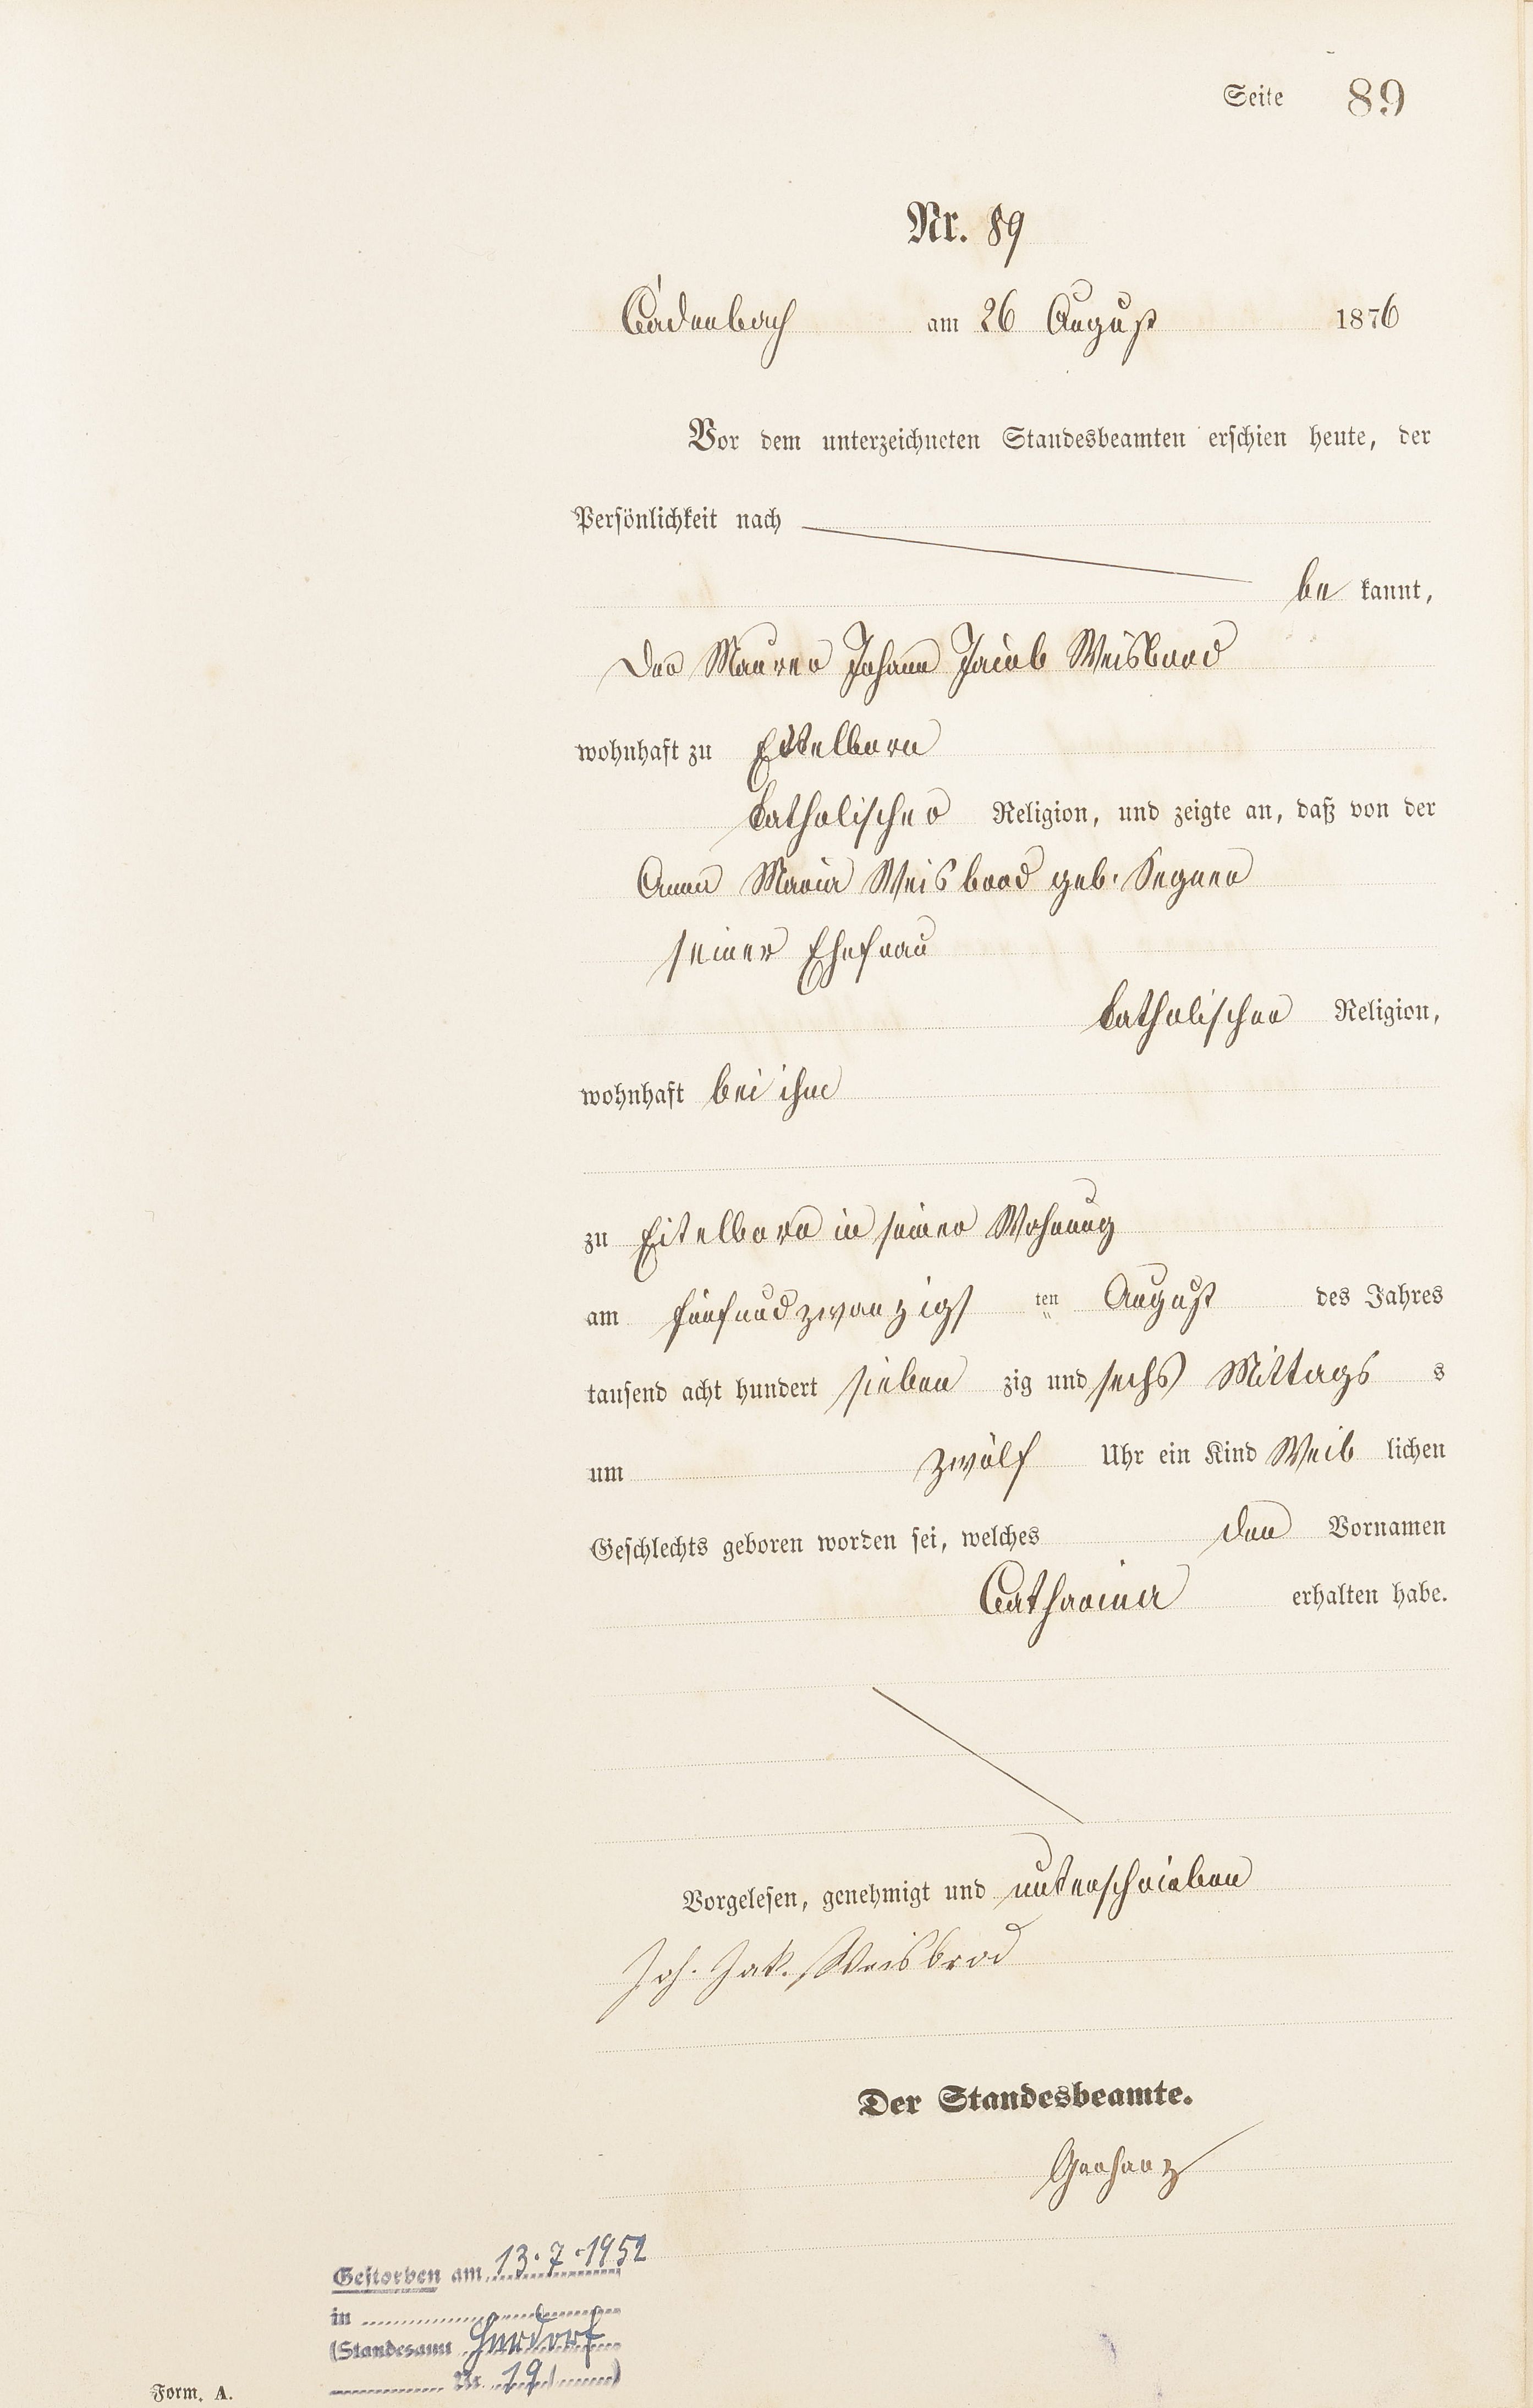 Seite 89
Nr. 89
Cadenbach am 26 August 1876
Vor dem unterzeichneten Standesbeamten erschien heute, der
Persönlichkeit nach
be kannt,
der Maurer Johann Jacob Weisbrod
wohnhaft zu Eitelborn
katholischer Religion, und zeigte an, daß von der
Anna Maria Weisbrod geb. Segner
seiner Ehefrau
katholischer Religion,
wohnhaft bei ihm
zu Eitelborn in seiner Wohnung
am fünfundzwanzigs ten August des Jahres
tausend acht hundert sieben zig und sechs Mittags s
um zwölf Uhr ein Kind Weib lichen
Geschlechts geboren worden sei, welches den Vornamen
Catharina erhalten habe.
Vorgelesen, genehmigt und unterschrieben
Joh. Jak. Weisbrod
Der Standesbeamte.
Gerharz
Gestorben am 13.7.1952
in
(Standesamt Herdorf
Nr. 19 )
Form. A.